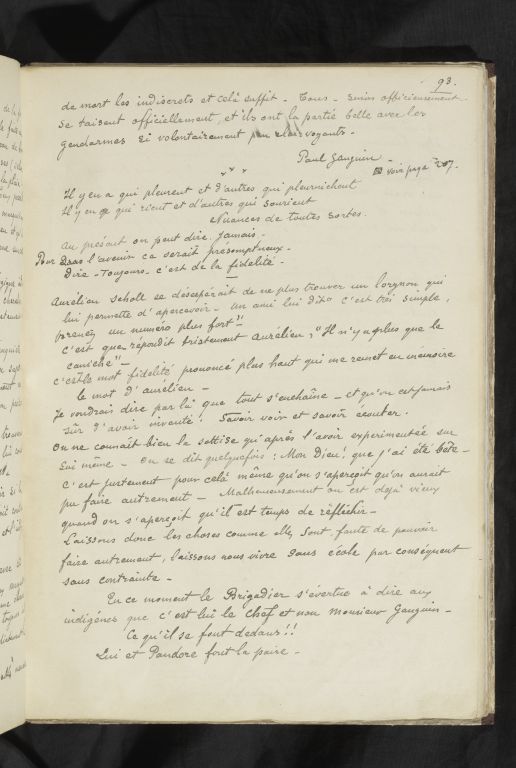 93.
de mort les indiscrets et celà suffit _ Tous _ sinon officieusement
se taisent officiellement, et ils ont la partie belle avec les
gendarmes si volontairement peu clairvoyants _
Paul Gauguin _
voir page 207.
Il y en a qui pleurent et d'autres qui pleurnichent
Il y en a qui rient et d'autres qui sourient
Nuances de toutes sortes.
au présent on peut dire. Jamais _
Pour dans l'avenir ce serait présomptueux _
Dire _ Toujours. c'est de la fidélité _
Aurélien Scholl se désespérait de ne plus trouver un lorgnon qui
lui permette d'apercevoir _ un ami lui dit " c'est très simple,
prenez un numéro plus fort"
c'est que répondit tristement Aurélien, "Il n'y a plus que le
caniche" _
c'est le mot fidélité prononcé plus haut qui me remet en mémoire
le mot d'aurélien _
Je voudrais dire par là que tout s'enchaîne _ et qu'on est jamais
sûr d'avoir inventé. Savoir voir et savoir écouter.
On ne connait bien la sottise qu'après l'avoir experimentée sur
soi même _ on se dit quelquefois : Mon Dieu! que j'ai été bête _
c'est justement pour celà même qu'on s'aperçoit qu'on aurait
pu faire autrement _ Malheureusement on est dejà vieux
quand on s'aperçoit qu'il est temps de réfléchir _
Laissons donc les choses comme elles sont, faute de pouvoir
faire autrement, laissons nous vivre sans école par conséquent
sans contrainte _
En ce moment le Brigadier s'évertue à dire aux
indigénes que c'est lui le chef et non Monsieur Gauguin _
Ce qu'il se fout dedans!!
Lui et Pandore font la paire _